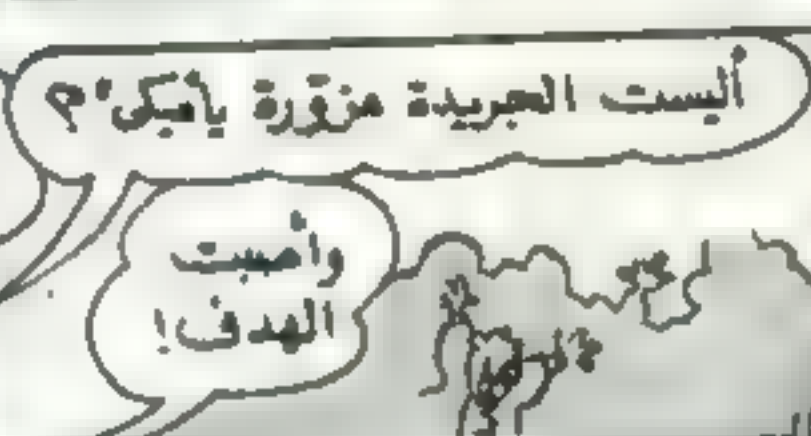 أليست الجريدة مزوّرة يا بيكي؟
وأصبت
الهدف!